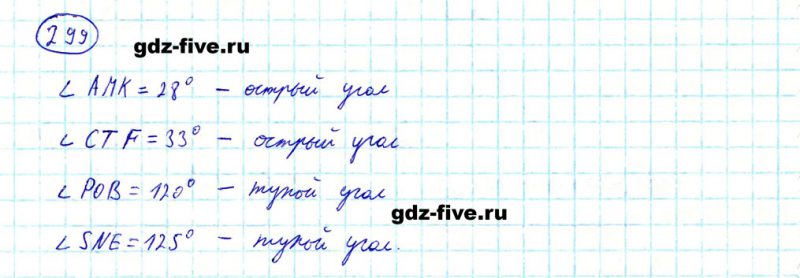 299
gdz-five.ru
∠ AMK = 28° – острый угол
∠ CTF = 33° – острый угол
∠ POB = 120° – тупой угол
gdz-five.ru
∠ SNE = 125° – тупой угол.